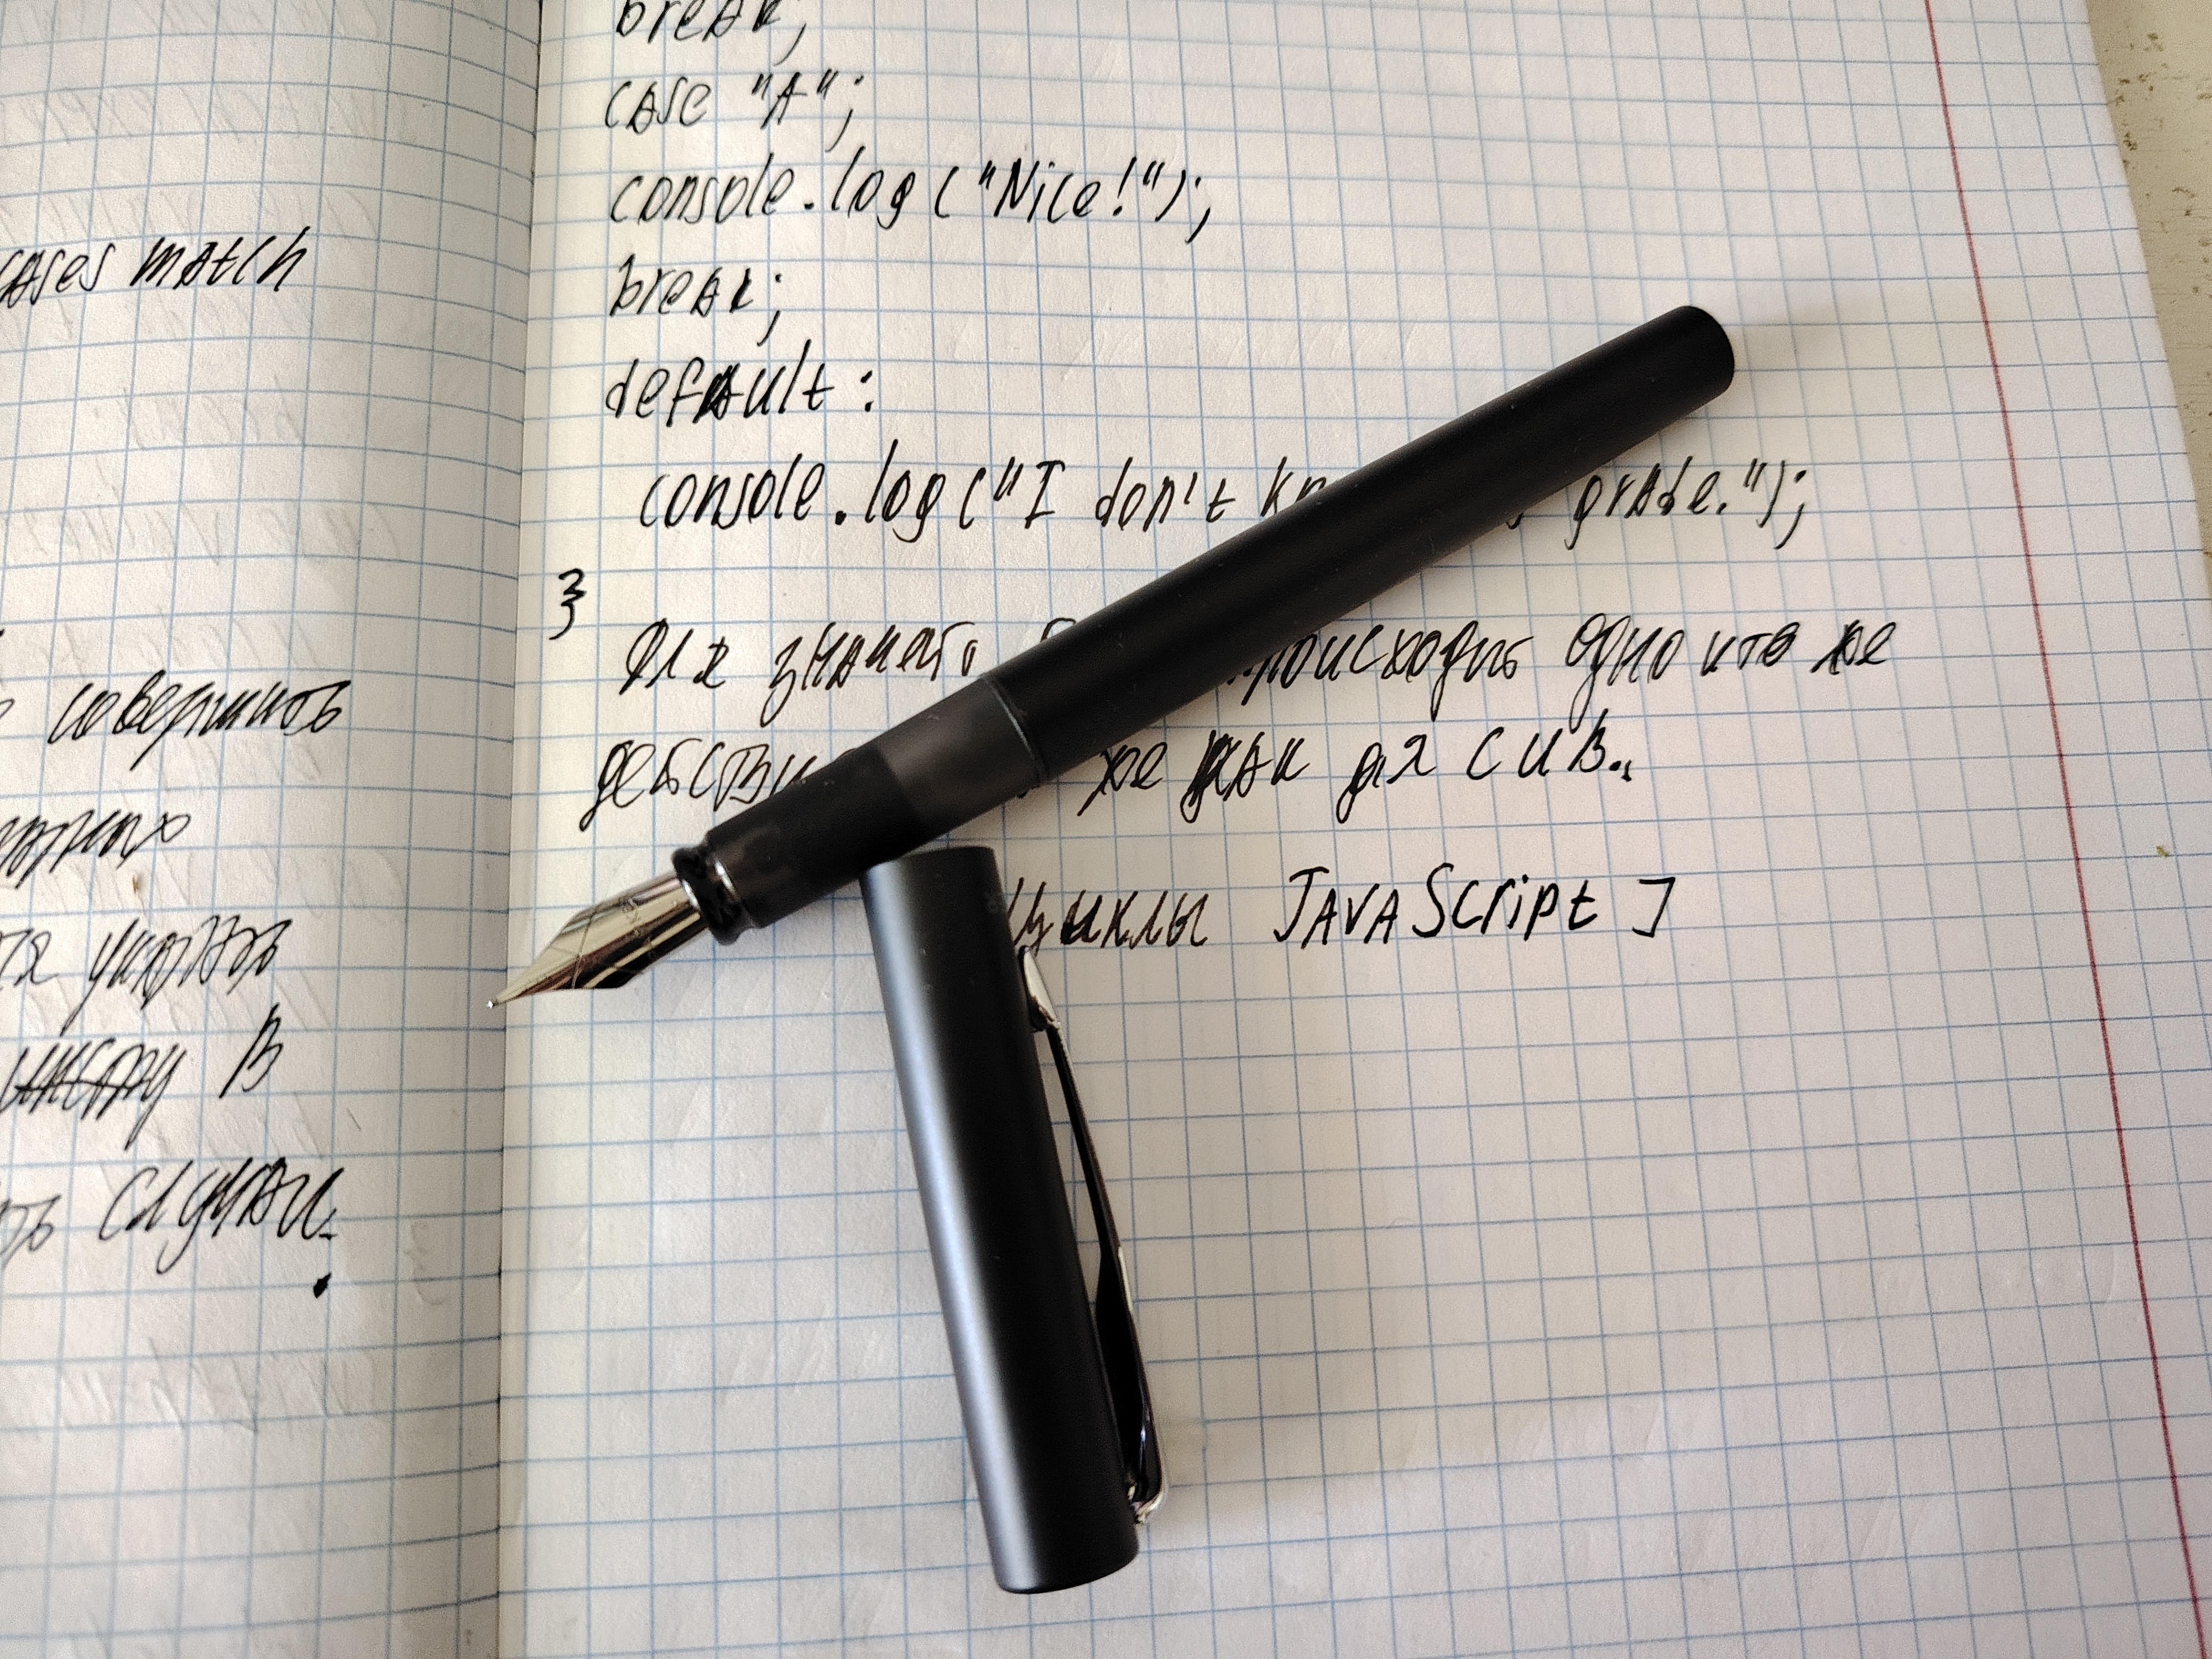 cases match
совершить
указать
в
случаи.
break;
case "A";
console.log("Nice!");
break;
default:
console.log("I don't grade.");
}
Для происходить одно и то же
же как для C и B..
циклы JAVAScript ]